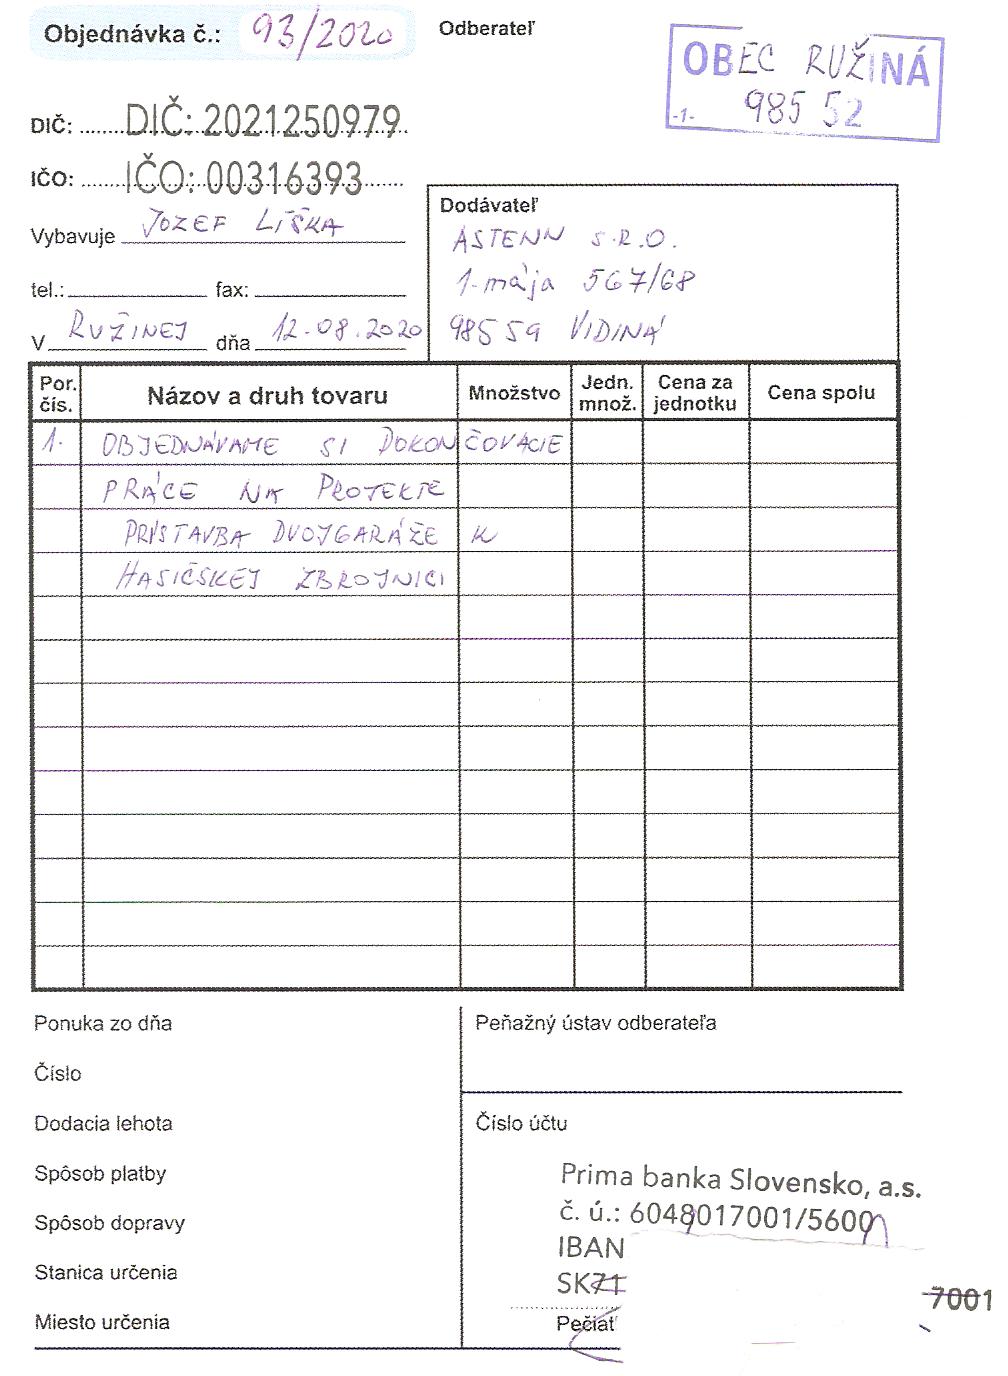 Objednávka č.: 93/2020
Odberateľ
OBEC RUŽINÁ
985 52
-1-
DIČ: DIČ: 2021250979
IČO: IČO: 00316393
Vybavuje JOZEF LÍŠKA
tel.: fax:
V RUŽINEJ dňa 12.08.2020
Dodávateľ
ASTENN S.R.O.
1. mája 567/68
985 59 VIDINÁ
Por. čís. Názov a druh tovaru Množstvo Jedn. množ. Cena za jednotku Cena spolu
1. OBJEDNÁVAME SI DOKONČOVACIE
PRÁCE NA PROJEKTE
PRÍSTAVBA DVOJGARÁŽE K
HASIČSKEJ ZBROJNICI
Ponuka zo dňa
Číslo
Dodacia lehota
Spôsob platby
Spôsob dopravy
Stanica určenia
Miesto určenia
Peňažný ústav odberateľa
Číslo účtu
Prima banka Slovensko, a.s.
č. ú.: 6048017001/5600
IBAN
SK71 7001
Pečiat